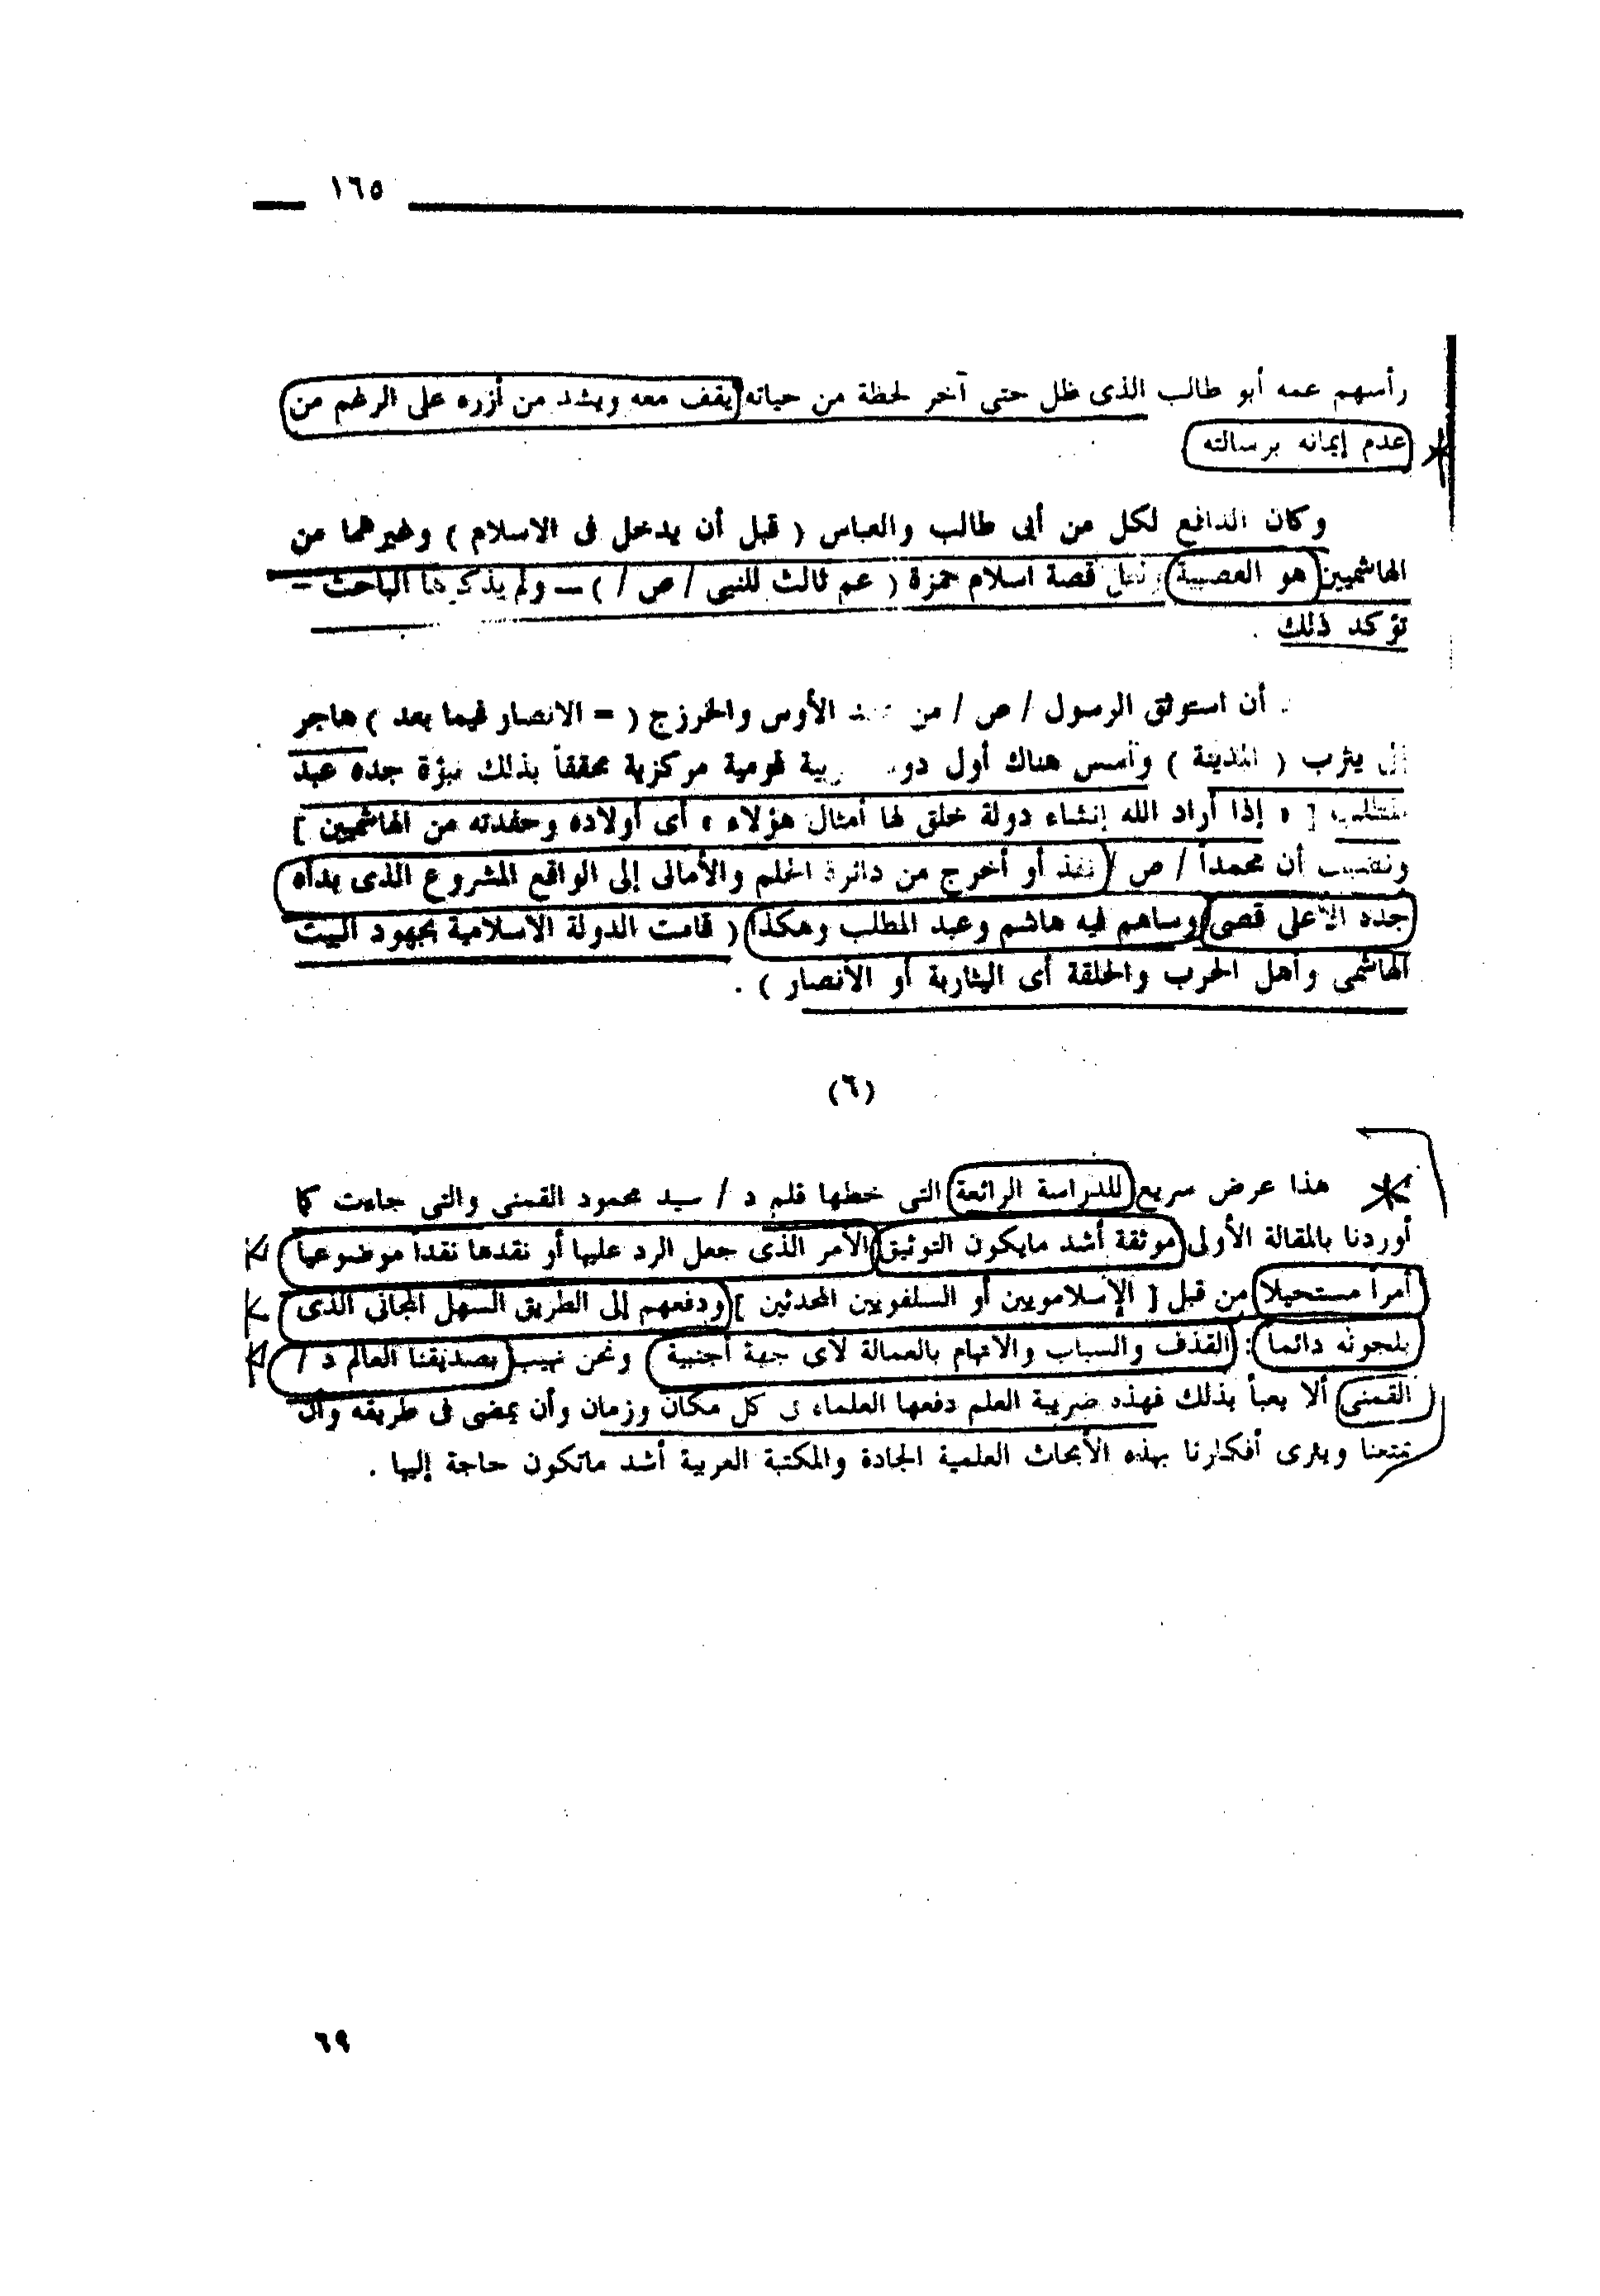 ١٦٥
رأسهم عمه أبو طالب الذى ظل حتى آخر لحظة من حياته يقف معه ويشد من أزره على الرغم من
عدم إيمانه برسالته
وكان الدافع لكل من أبى طالب والعباس ( قبل أن يدخل فى الاسلام ) وغيرهما من
الهاشميين هو العصبية قصة اسلام حمزة ( عم ثالث للنبى / ص / ) — ولم يذكرها الباحث –
تؤكد ذلك .
أن استوثق الرسول / ص / من الأوس والخزرج ( = الانصار فيما بعد ) هاجر
إلى يثرب ( المدينة ) وأسس هناك أول قومية مركزية محققاً بذلك نبؤة جده عبد
المطلب [ « إذا أراد الله إنشاء دولة خلق لها أمثال هؤلاء » أى أولاده وحفدته من الهاشميين ]
أن محمداً / ص / نفذ أو أخرج من دائرة الحلم والأمالى إلى الواقع المشروع الذى بدأه
جده الأعلى قصى وساهم فيه هاشم وعبد المطلب وهكذا ( قامت الدولة الاسلامية بجهود البيت
الهاشمى وأهل الحرب والحلقة أى اليثاربة أو الأنصار ) .
(٦)
هذا عرض سريع للدراسة الرائعة التى خطها قلم د / سيد محمود القمنى والتى جاءت كما
أوردنا بالمقالة الأولى موثقة أشد مايكون التوثيق الأمر الذى جعل الرد عليها أو نقدها نقداً موضوعيا
أمراً مستحيلا من قبل [ الإسلامويين أو السلفويين المحدثين ] ودفعهم إلى الطريق السهل المجانى الذى
يلجونه دائما : القذف والسباب والاتهام بالعمالة لأى جهة أجنبية ونحن نهيب بصديقنا العالم د /
القمنى ألا يعبأ بذلك فهذه ضريبة العلم دفعها العلماء فى كل مكان وزمان وأن يمضى فى طريقه وأن
يمتعنا ويثرى أفكارنا بهذه الأبحاث العلمية الجادة والمكتبة العربية أشد ماتكون حاجة إليها .
٦٩